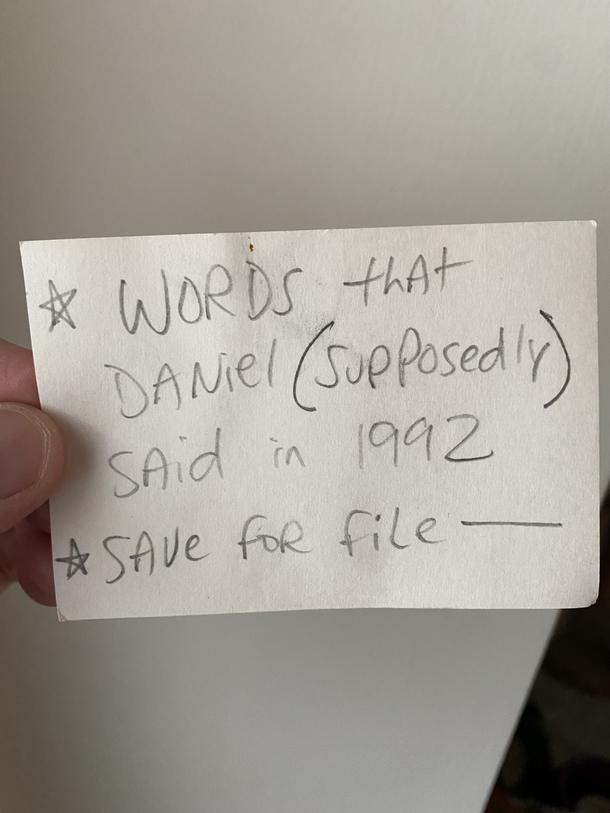 ☆ WORDS thAt
DANiel (supposedly)
SAid in 1992
☆ SAVe FOR FiLe —